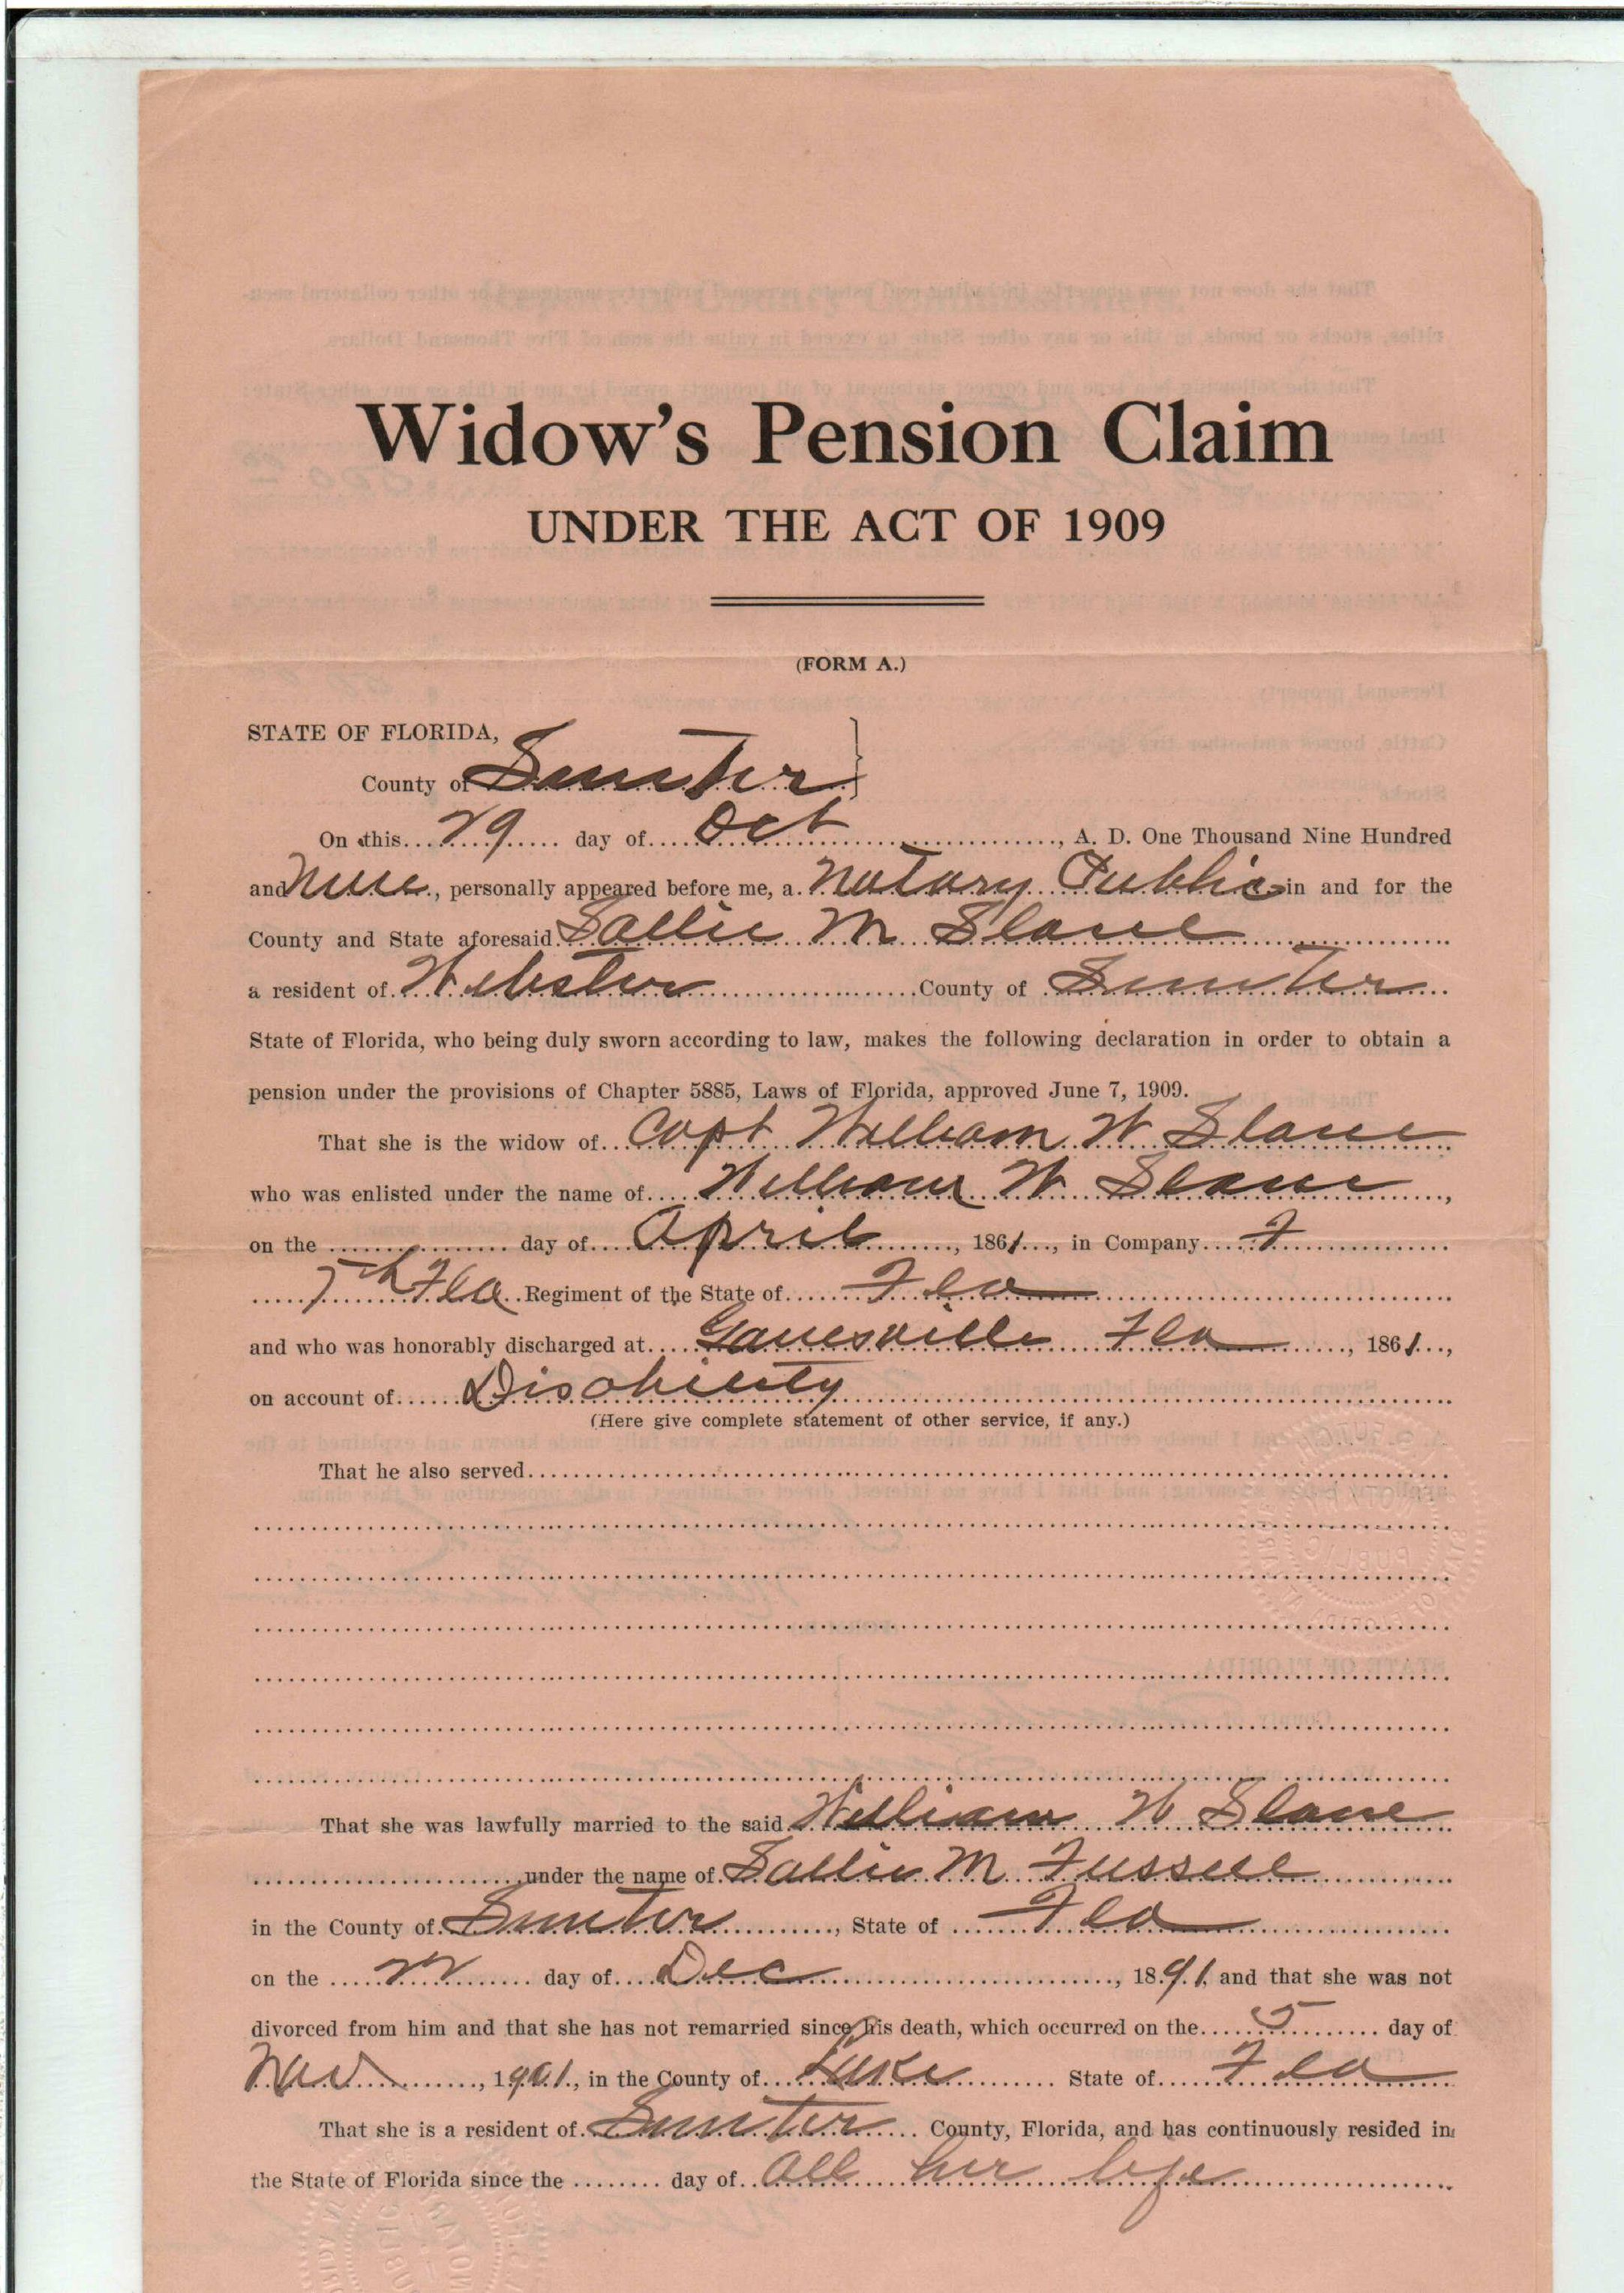 Widow's Pension Claim
UNDER THE ACT OF 1909
(FORM A.)
STATE OF FLORIDA,
County of Sumter
On this 29 day of Oct, A. D. One Thousand Nine Hundred
and Nine, personally appeared before me, a Notary Public in and for the
County and State aforesaid Sallie M Slone
a resident of Webster County of Sumter
State of Florida, who being duly sworn according to law, makes the following declaration in order to obtain a
pension under the provisions of Chapter 5885, Laws of Florida, approved June 7, 1909.
That she is the widow of Capt William W Slone
who was enlisted under the name of William W Slone,
on the day of April, 1861, in Company F
7th Fla Regiment of the State of Fla
and who was honorably discharged at Gainesville Fla, 1861,
on account of Disability
(Here give complete statement of other service, if any.)
That he also served
That she was lawfully married to the said William W Slone
under the name of Sallie M Fussell
in the County of Sumter, State of Fla
on the 22 day of Dec, 1891, and that she was not
divorced from him and that she has not remarried since his death, which occurred on the 5 day of
Nov, 1901, in the County of Lake State of Fla
That she is a resident of Sumter County, Florida, and has continuously resided in
the State of Florida since the day of All her life